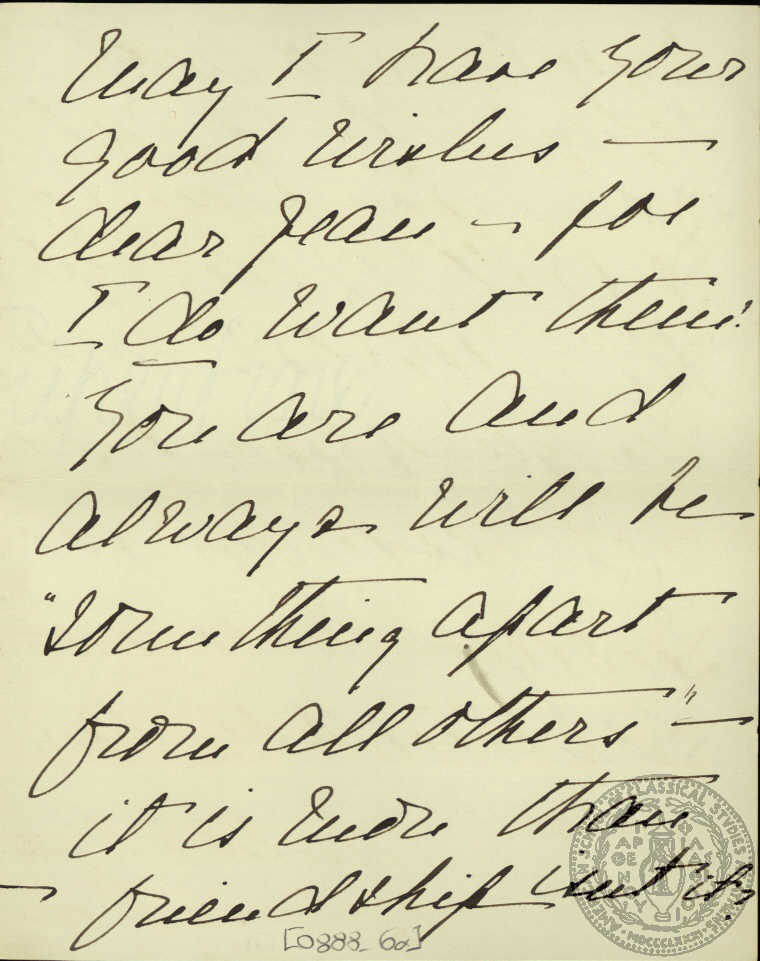 May I have your
good wishes —
dear Jean — for
I do want them!
You are and
always will be
"something apart
from all others" —
it is more than
— friendship isn't it?
[0888_6a]
AMERICAN SCHOOL OF CLASSICAL STUDIES AT ATHENS
MDCCCLXXXI